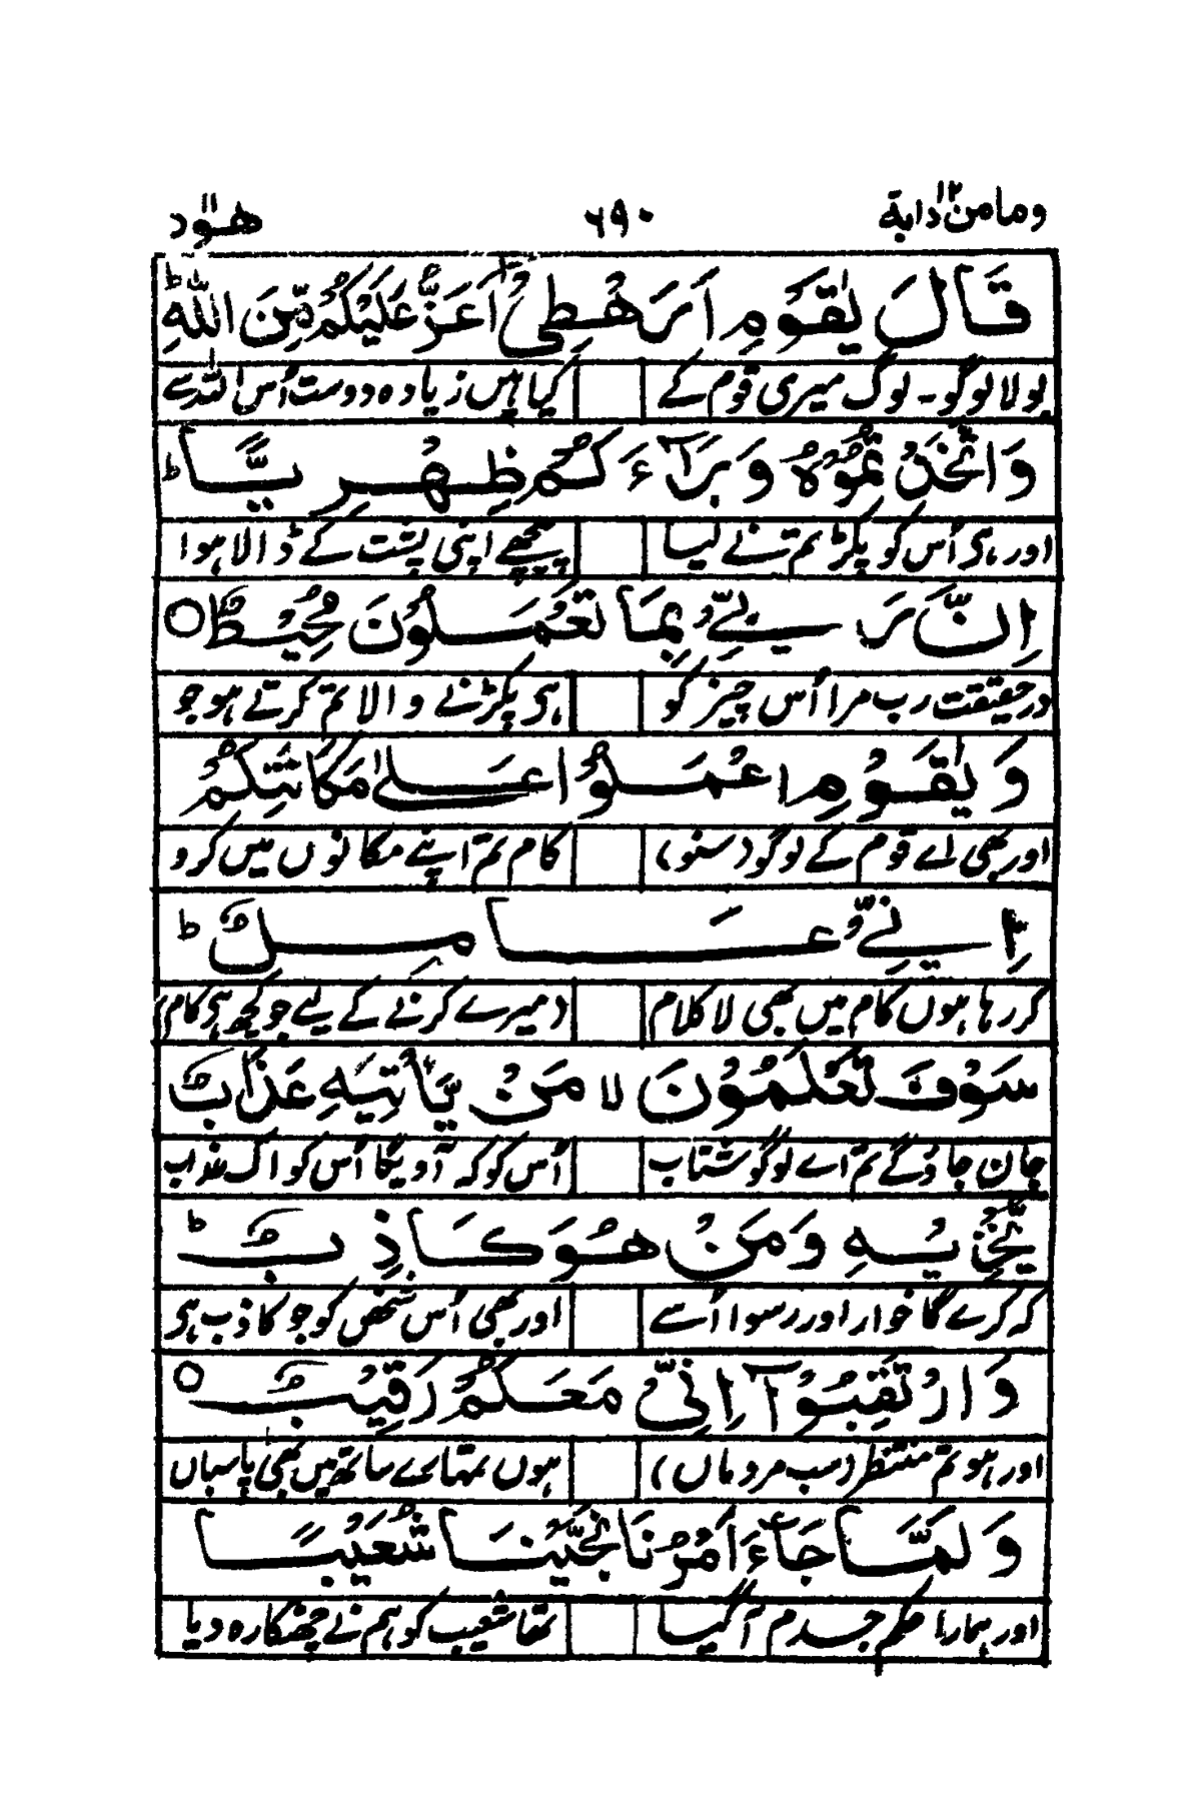 ومامن دابة ۱۲ ۶۹۰ هود ۱۱
قَالَ يٰقَوْمِ اَرَهْطِىْٓ اَعَزُّ عَلَيْكُمْ مِّنَ اللّٰهِ ؕ
بولا لوگو ۔ لوگ میری قوم کے کیا ہیں زیادہ دوست اُس اللہ سے
وَاتَّخَذْتُمُوْهُ وَرَآءَكُمْ ظِهْرِيًّا ؕ
اور ہی اُس کو پکڑ تم نے لیا پیچھے اپنی پشت کے ڈالا ہوا
اِنَّ رَبِّىْ بِمَا تَعْمَلُوْنَ مُحِيْطٌ ○
درحقیقت رب مرا اُس چیز کو ہی پکڑنے والا تم کرتے ہو جو
وَيٰقَوْمِ اعْمَلُوْا عَلٰى مَكَانَتِكُمْ
اور بھی اے قوم کے لوگو (سنو) کام تم اپنے مکانوں میں کرو
اِنِّىْ عَامِلٌ ؕ
کر رہا ہوں کام میں بھی لا کلام (میرے کرنے کے لیے جو کچھ ہی کام)
سَوْفَ تَعْلَمُوْنَ ۙ مَنْ يَّاْتِيْهِ عَذَابٌ
جان جاؤ گے تم اے لوگو شتاب اُس کو کہ آویگا اُس کو اک عذاب
يُّخْزِيْهِ وَمَنْ هُوَ كَاذِبٌ ؕ
کہ کرے گا خوار اور رسوا اُسے اور بھی اُس شخص کو جو کاذب ہی
وَارْتَقِبُوْٓا اِنِّىْ مَعَكُمْ رَقِيْبٌ ○
اور ہو تم منتظر (سب مردماں) ہوں تمہارے ساتھ میں بھی پاسباں
وَلَمَّا جَآءَ اَمْرُنَا نَجَّيْنَا شُعَيْبًا
اور ہمارا حکم جس دم آ گیا تھا شعیب کو ہم نے چھٹکارہ دیا